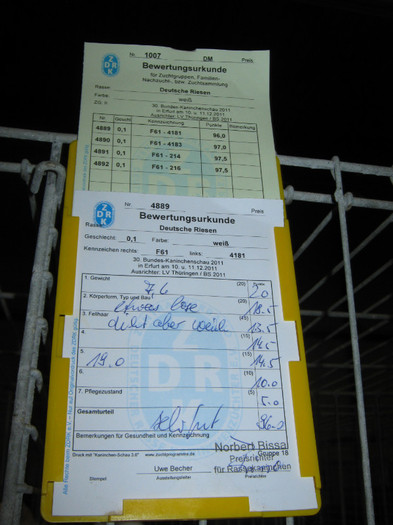 Z
D R
K
Nr. 1007 DM Preis
Bewertungsurkunde
für Zuchtgruppen, Familien-
Nachzucht-, bzw. Zuchtsammlung
Rasse: Deutsche Riesen
Farbe: weiß
ZG: II
30. Bundes-Kaninchenschau 2011
in Erfurt am 10. u. 11.12.2011
Ausrichter: LV Thüringen / BS 2011
Nr. Geschl. Kennzeichnung Punkte Bemerkung
4889 0,1 F61 - 4181 96,0
4890 0,1 F61 - 4183 97,0
4891 0,1 F61 - 214 97,5
4892 0,1 F61 - 216 97,5
Z
D R
K
Nr. 4889 Preis
Bewertungsurkunde
Rasse: Deutsche Riesen
Geschlecht: 0,1 Farbe: weiß
Kennzeichen rechts: F61 links: 4181
30. Bundes-Kaninchenschau 2011
in Erfurt am 10. u. 11.12.2011
Ausrichter: LV Thüringen / BS 2011
1. Gewicht (20) 20
2. Körperform, Typ und Bau (20) 18.5
3. Fellhaar dicht aber weich 13.5
4. (15) 14.5
5. 19.0 (15) 14.5
6. (10) 10.0
7. Pflegezustand (5) 5.0
Gesamturteil sehr gut 96.0
Bemerkungen für Gesundheit und Kennzeichnung
Norbert Bissal
Preisrichter
für Rassekaninchen
Gruppe 18
Uwe Becher
Stempel Ausstellungsleiter Preisrichter